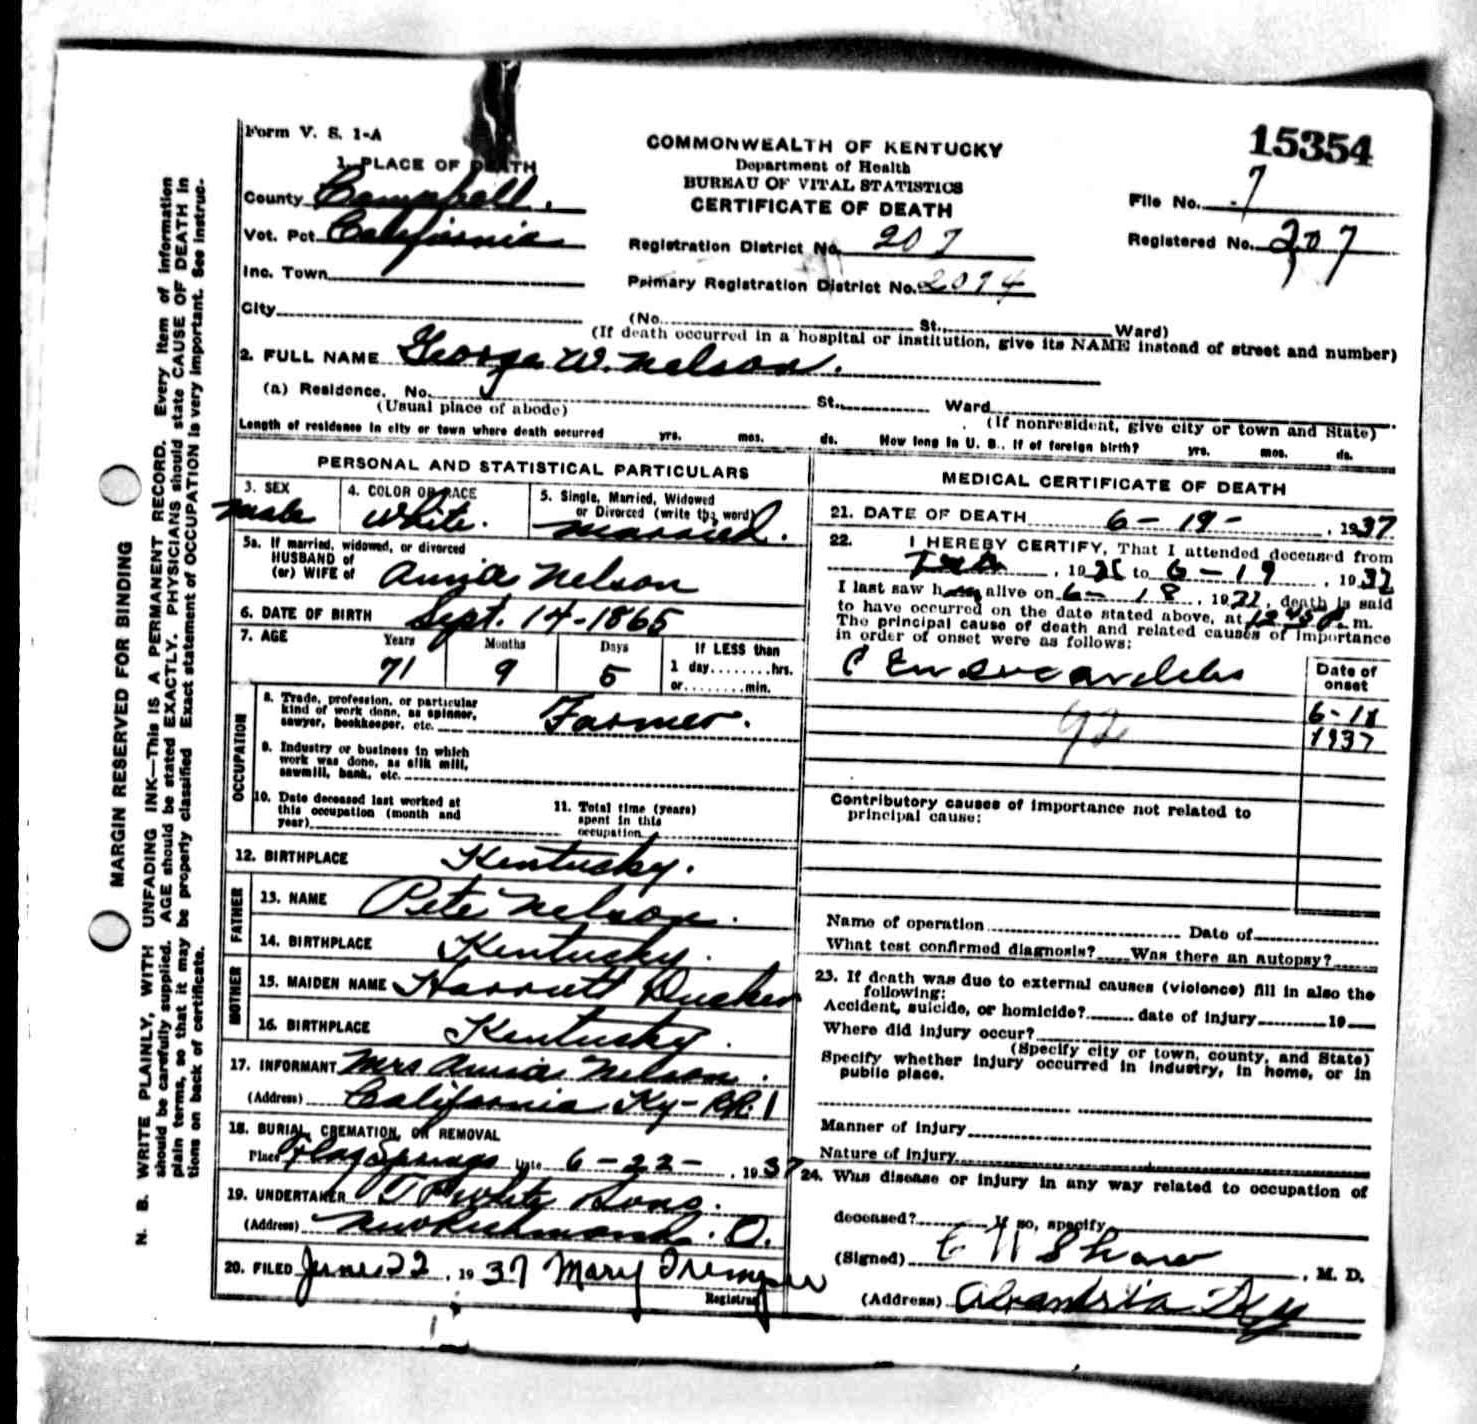 Form V. S. 1-A
15354
COMMONWEALTH OF KENTUCKY
Department of Health
BUREAU OF VITAL STATISTICS
CERTIFICATE OF DEATH
1. PLACE OF DEATH
County Campbell.
Vot. Pct. California
Inc. Town
City
Registration District No. 207
Primary Registration District No. 2094
File No. 7
Registered No. 207
(No. St., Ward)
(If death occurred in a hospital or institution, give its NAME instead of street and number)
2. FULL NAME George W. Nelson.
(a) Residence. No. St., Ward
(Usual place of abode) (If nonresident, give city or town and State)
Length of residence in city or town where death occurred yrs. mos. ds. How long in U. S., if of foreign birth? yrs. mos. ds.
PERSONAL AND STATISTICAL PARTICULARS
3. SEX Male
4. COLOR OR RACE White.
5. Single, Married, Widowed or Divorced (write the word) Married.
5a. If married, widowed, or divorced
HUSBAND of
(or) WIFE of Annie Nelson
6. DATE OF BIRTH Sept. 14-1865
7. AGE Years Months Days If LESS than
71 9 5 1 day........hrs.
or........min.
OCCUPATION
8. Trade, profession, or particular
kind of work done, as spinner,
sawyer, bookkeeper, etc. Farmer.
9. Industry or business in which
work was done, as silk mill,
sawmill, bank, etc.
10. Date deceased last worked at
this occupation (month and
year)
11. Total time (years)
spent in this
occupation
12. BIRTHPLACE Kentucky.
FATHER
13. NAME Pete Nelson.
14. BIRTHPLACE Kentucky.
MOTHER
15. MAIDEN NAME Harriett Ducker
16. BIRTHPLACE Kentucky.
17. INFORMANT Mrs Annie Nelson.
(Address) California Ky-RR.1
18. BURIAL, CREMATION, OR REMOVAL
Place Flag Springs Date 6-22-, 1937
19. UNDERTAKER White Sons.
(Address) New Richmond. O.
20. FILED June 22, 1937 Mary
Registrar
MEDICAL CERTIFICATE OF DEATH
21. DATE OF DEATH 6-19-, 1937
22. I HEREBY CERTIFY, That I attended deceased from
, 19 to 6-19, 1937
I last saw him alive on 6-18, 1937, death is said
to have occurred on the date stated above, at 12:45 m.
The principal cause of death and related causes of importance
in order of onset were as follows:
Date of
onset
6-18
1937
92
Contributory causes of importance not related to
principal cause:
Name of operation Date of
What test confirmed diagnosis? Was there an autopsy?
23. If death was due to external causes (violence) fill in also the
following:
Accident, suicide, or homicide? date of injury 19
Where did injury occur?
(Specify city or town, county, and State)
Specify whether injury occurred in industry, in home, or in
public place.
Manner of injury
Nature of injury
24. Was disease or injury in any way related to occupation of
deceased? If so, specify
(Signed) Shaw, M. D.
(Address) Alexandria Ky
MARGIN RESERVED FOR BINDING
N. B. WRITE PLAINLY, WITH UNFADING INK—This is A PERMANENT RECORD. Every item of information
should be carefully supplied. AGE should be stated EXACTLY. PHYSICIANS should state CAUSE OF DEATH in
plain terms, so that it may be properly classified. Exact statement of OCCUPATION is very important. See instruc-
tions on back of certificate.